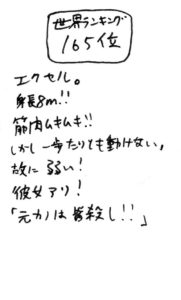 世界ランキング
165位
エクセル。
身長8m!!
筋肉ムキムキ!!
しかし一歩たりても動けない,
故に弱い!
彼女アリ!
「元カノは皆殺し!!」